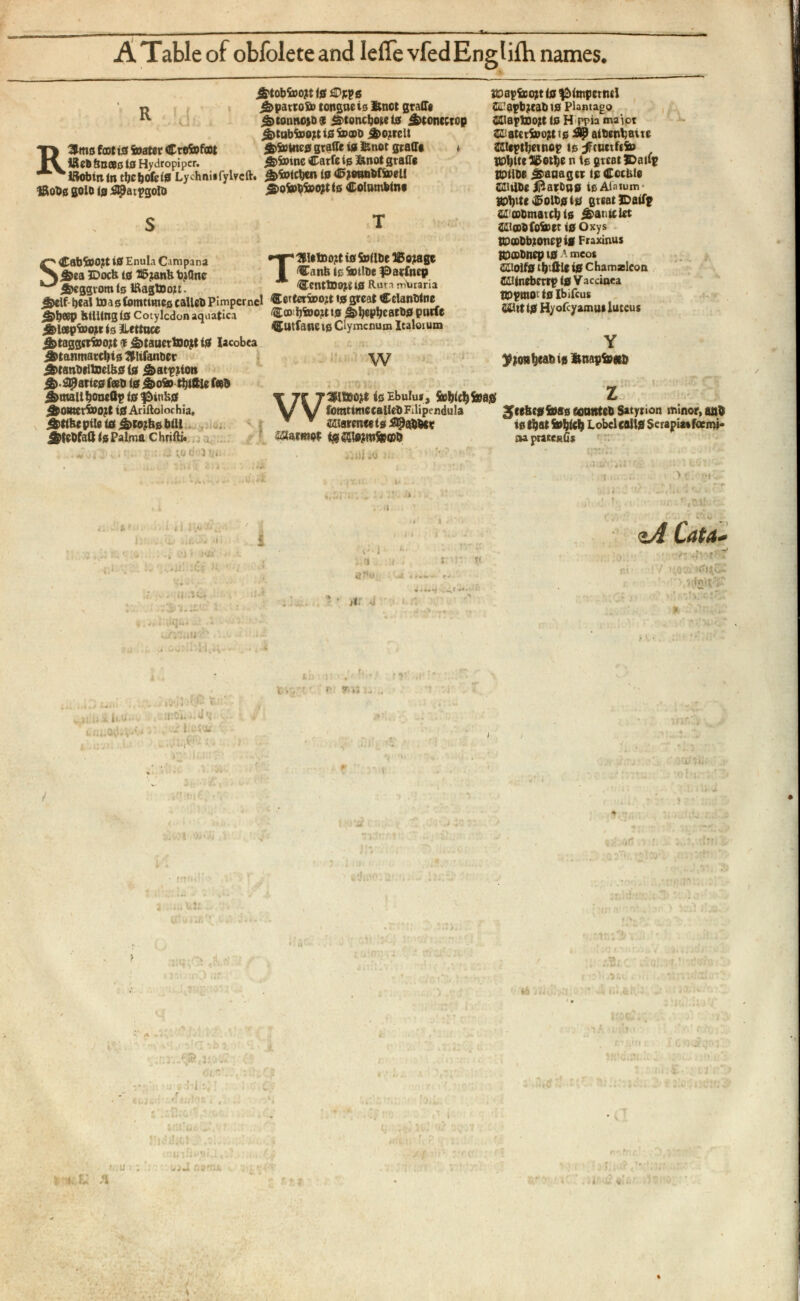 A Table of obsolete and lesse vsed English names.
R
RAms foot is water Crowfoot
Red knees is Hydropiper.
Robin in the hose is Lychnis sylvest.
Rods gold is Marygold
S
SCabwort is Enula Campana
Sea Dock is Brank vrsine
Seggrom is Ragwort.
Self-heal was somtimes called Pimpernel
Sheep killing is Cotyledon aquatica
Sleepwort is Lettuce
Staggerwort & Stauerwort is Iacobea
Stanmarch is Alisander
Standelwelks is Satyrion
S. Maries seed is Sow-thistle seed
Small honesty is Pinks
Sowerwort is Aristolochia.
Palma Christi.
Stobwort is Oxys
Sparrow tongue is Knot grasse
Stonnord & Stonchore is Stonecrop
Stubwort is wood Sorrell
Swines grasse is Knot grasse
Swine Carse is Knot grasse
Swichen is Groundswell
Sowhwort is Columbine
T
Tank is wilde Parsnep
Tentwort is Ruta muraria
Tetterwort is great Celandine
Toothwort is Shepheards purse
Clymenum Italorum
W
WAlwort is Ebulus, which was
somtime called Filipendula
Warence is Madder
Warmot is Wormwood
Waywort is Pimpernel
Waybread is Plantago
Waywort is Hippia maior
Waterwort is Maidenhaire
White Bothen is great Daisy
Wilde Sauager is Cockle
Wilde Nardus is Asarum
White Golds is great Daisy
Woodmarch is Sanicle
Woodsower is Oxys
Woodbronep is Fraxinus
Woodnep is Ameos
Wolfs thistle is Chamæleon
Wineberry is Vaccinea
Wymot is Ibiscus
Hyoscyamus luteus
Y
Yronhead is Knapweed
Z
was counted Satyrion minor, and
is that which Lobel calls Serapias foemi-
na pratensis
A Cata-